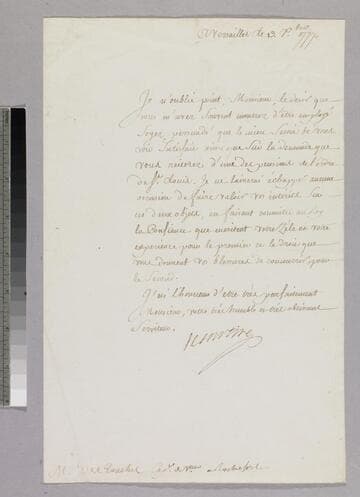 A Versailles le 3. 7bre 1774
Je n'oublie point, Monsieur, le desir que
vous m'avez souvent montré d'être employé
Soyez persuadé que le mien seroit de vous
voir satisfait ainsi que sur la demande que
vous réiterez d'une des pensions de l'ordre
de St. Louis. Je ne laisserai échapper aucune
occasion de faire valoir vos interets sur
ces deux objets, en faisant connoitre au Roy
la Confiance que meritent votre Zele et votre
experience pour le premier et le droit que
vous donnent vos blessures de concourir pour
le Second.
J'ai l'honneur d'etre très parfaitement
Monsieur, votre très humble et très obéissant
Serviteur.
M. de Cap. de Vau Rochefort